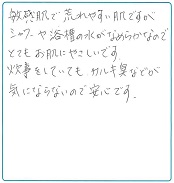 敏感肌で荒れやすい肌ですが
シャワーや浴槽の水がなめらかなので
とてもお肌にやさしいです。
炊事をしていてもカルキ臭などが
気にならないので安心です。